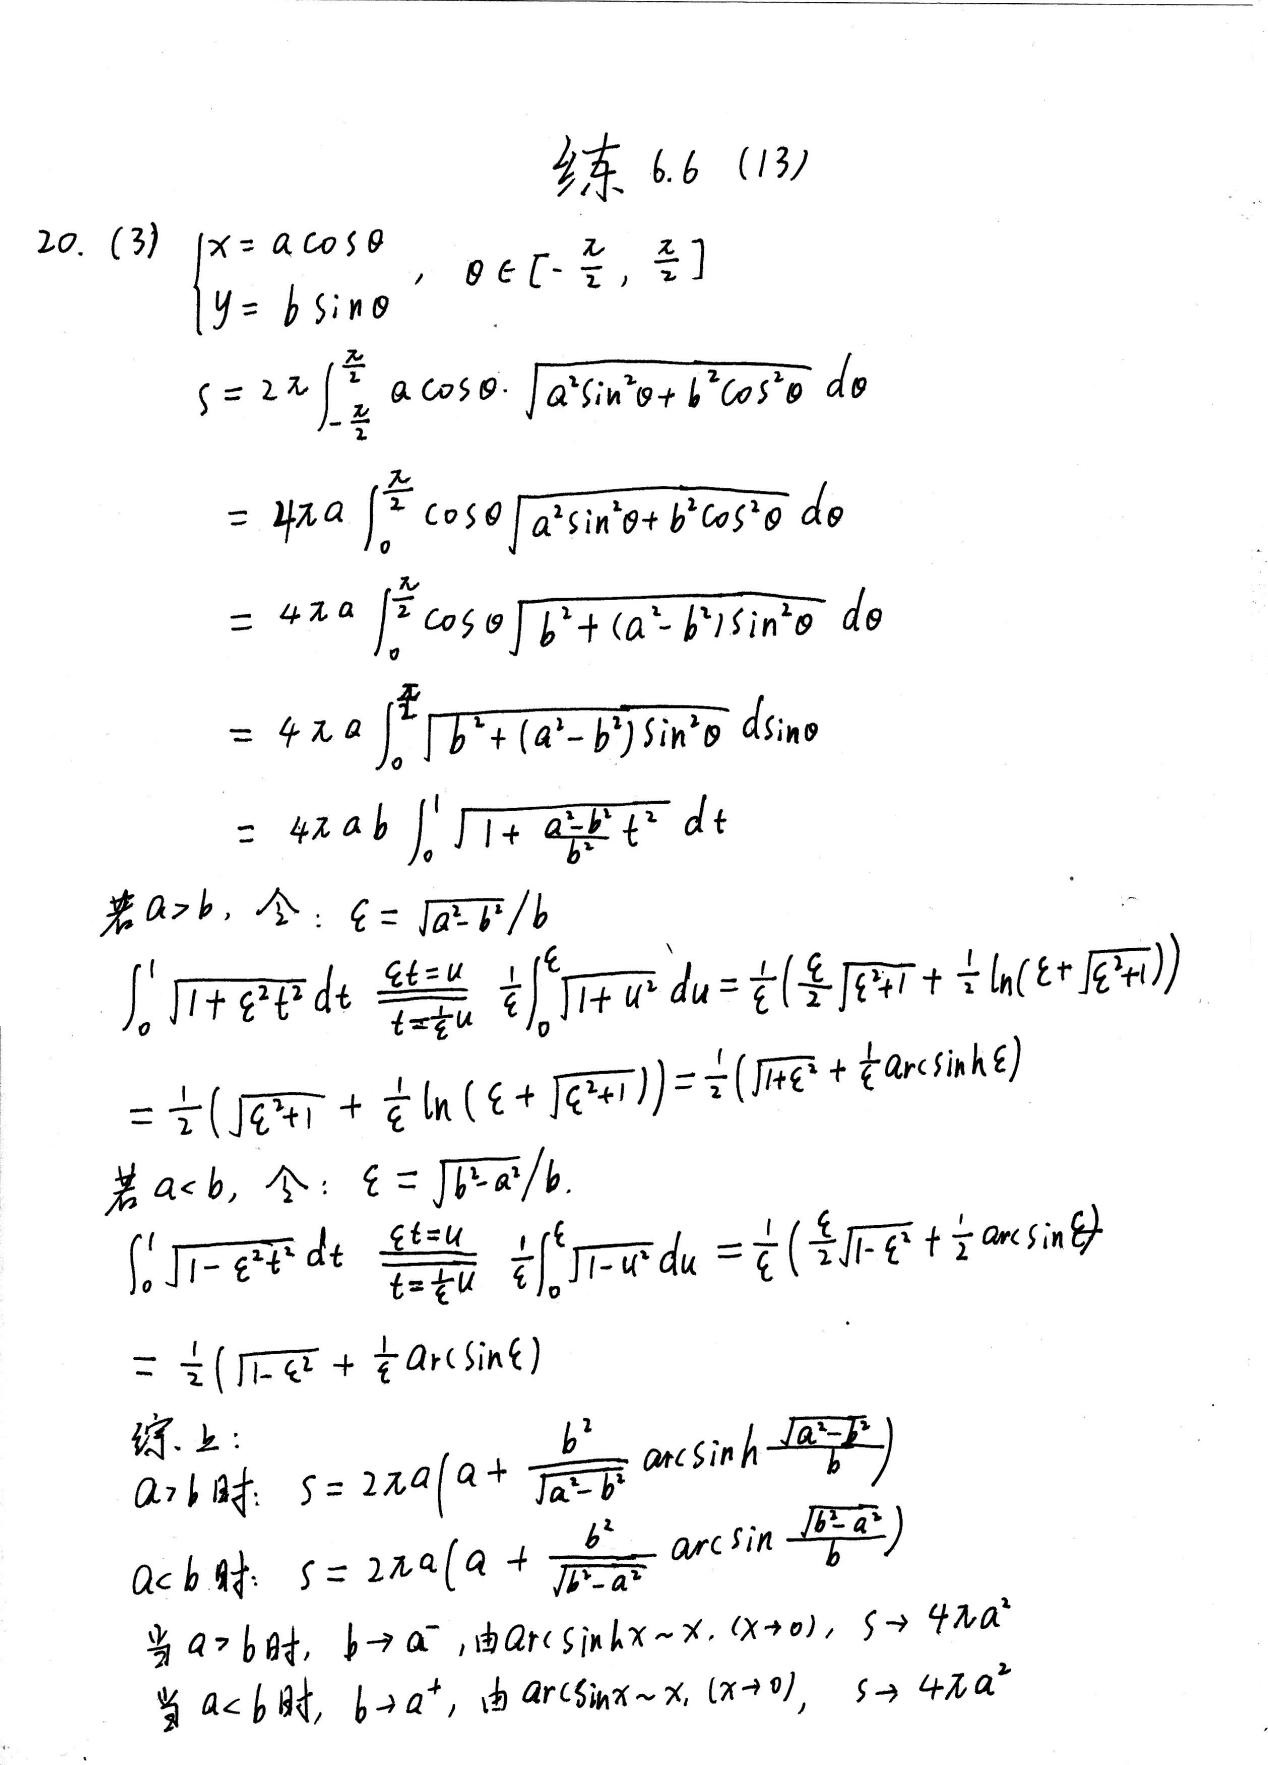 练 6.6 (13)
20. (3) { x = a cosθ
y = b sinθ , θ ∈ [-π/2, π/2]
S = 2π ∫_{-π/2}^{π/2} a cosθ · √(a²sin²θ + b²cos²θ) dθ
= 4πa ∫_0^{π/2} cosθ √(a²sin²θ + b²cos²θ) dθ
= 4πa ∫_0^{π/2} cosθ √(b² + (a² - b²)sin²θ) dθ
= 4πa ∫_0^{π/2} √(b² + (a² - b²)sin²θ) dsinθ
= 4πab ∫_0^1 √(1 + (a²-b²)/b² t²) dt
若 a>b, 令: ε = √(a²-b²)/b
∫_0^1 √(1+ε²t²) dt (εt=u)/(t=1/ε u) = 1/ε ∫_0^ε √(1+u²) du = 1/ε (ε/2 √(ε²+1) + 1/2 ln(ε+√(ε²+1)))
= 1/2 (√(ε²+1) + 1/ε ln(ε+√(ε²+1))) = 1/2 (√(1+ε²) + 1/ε arcsinh ε)
若 a<b, 令: ε = √(b²-a²)/b.
∫_0^1 √(1-ε²t²) dt (εt=u)/(t=1/ε u) = 1/ε ∫_0^ε √(1-u²) du = 1/ε (ε/2 √(1-ε²) + 1/2 arcsin ε)
= 1/2 (√(1-ε²) + 1/ε arcsin ε)
综上:
a>b时: S = 2πa(a + b²/√(a²-b²) arcsinh √(a²-b²)/b)
a<b时: S = 2πa(a + b²/√(b²-a²) arcsin √(b²-a²)/b)
当 a>b时, b→a⁻, 由arcsinhx~x, (x→0), S→4πa²
当 a<b时, b→a⁺, 由arcsinx~x, (x→0), S→4πa²